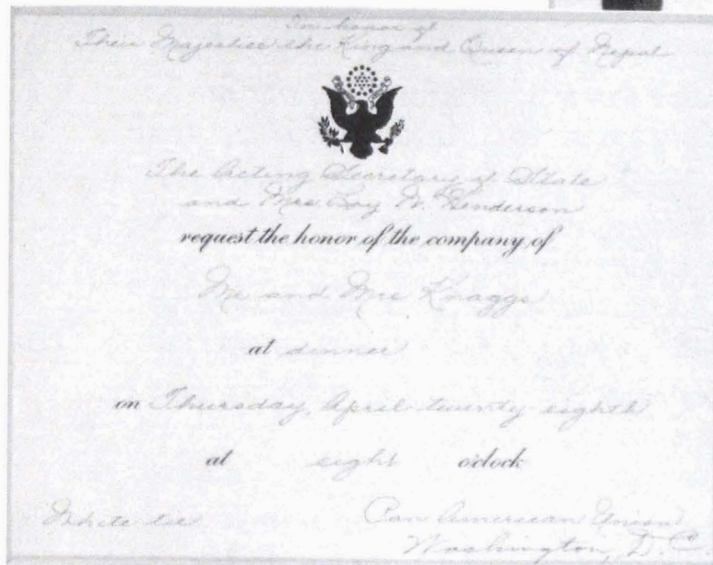 In honor of
Their Majesties the King and Queen of Nepal
The Acting Secretary of State
and Mrs Loy W. Henderson
request the honor of the company of
Mr and Mrs Knaggs
at dinner
on Thursday, April twenty eighth
at eight o'clock
White tie
Pan American Union
Washington, D.C.